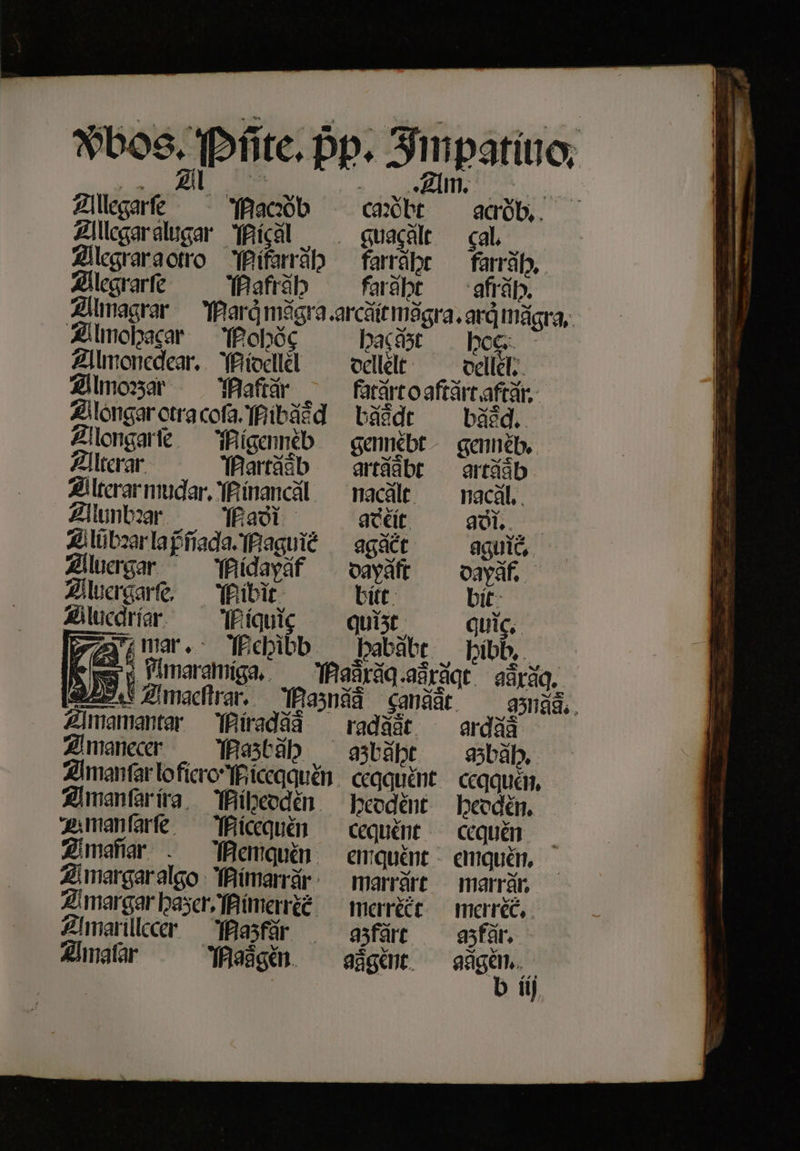 Vbos. Pñte. p̃p. Jmpatiuo,
Al Am.
Allegarse Nacrŏb carŏbt acrŏb,.
Allegar alugar Niçăl guaçălt çal.
Alegrar a otro Nifarrăh farrăht farrăh,
Alegrarse Nafrăh farăht afrăh.
Almagrar Narq̃ măgra. arcăit măgra. arq̃ măgra,
Almohaçar Nohŏç haçăzt hoç.
Almonedear. Nidellĕl dellĕlt dellĕl.
Almorzar Naftăr fatărt o aftărt. aftăr.
Alongar otra cosa. Nibăâd băâdt băâd.
Alongarse Nigennĕb gennĕbt gennĕb.
Alterar Nartăâb artăâbt artăâb
Alterar mudar. Ninancăl nacălt nacăl.
Alunbrar Nadĭ adĕit adĭ.
Alũbrar la p̃ñada. Naguiĉ agăĉt aguiĉ,
Aluergar Nidayăf dayăft dayăf.
Aluergarse. Nibĭt bitt. bit.
Alucdriar Niquĭç quĭzt quĭç.
Amar. Nehibb habăbt hibb.
Amaramiga. Naârăq. aârăqt aârăq.
Amaestrar. Naznăâ çanăât aznăâ.
Amamantar Niradăâ radăât ardăâ
Amanecer Nazbăh azbăht azbăh.
Amansar lo fiero Niceqquĕn ceqquĕnt ceqquĕn,
Amansar ira Nihedĕn hedĕnt hedĕn.
Amansarse Nicequĕn cequĕnt cequĕn
Amañar. Nemquĕn emquĕnt emquĕn,
Amargar algo Nimarrăr marrărt marrăr.
Amargar hazer. Nimerrĕĉ merrĕĉt merrĕĉ.
Amarillecer Nazfăr azfărt azfăr.
Amasar Naâgĕn aâgĕnt aâgĕn.
b iij